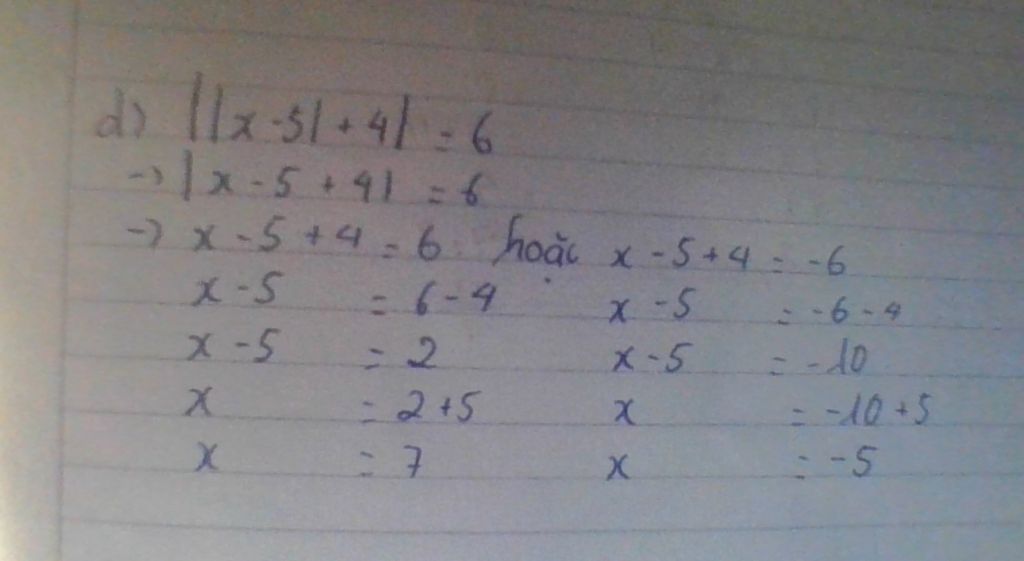 d) ||x - 5| + 4| = 6
→ |x - 5 + 4| = 6
→ x - 5 + 4 = 6 hoặc x - 5 + 4 = -6
x - 5 = 6 - 4 x - 5 = -6 - 4
x - 5 = 2 x - 5 = -10
x = 2 + 5 x = -10 + 5
x = 7 x = -5